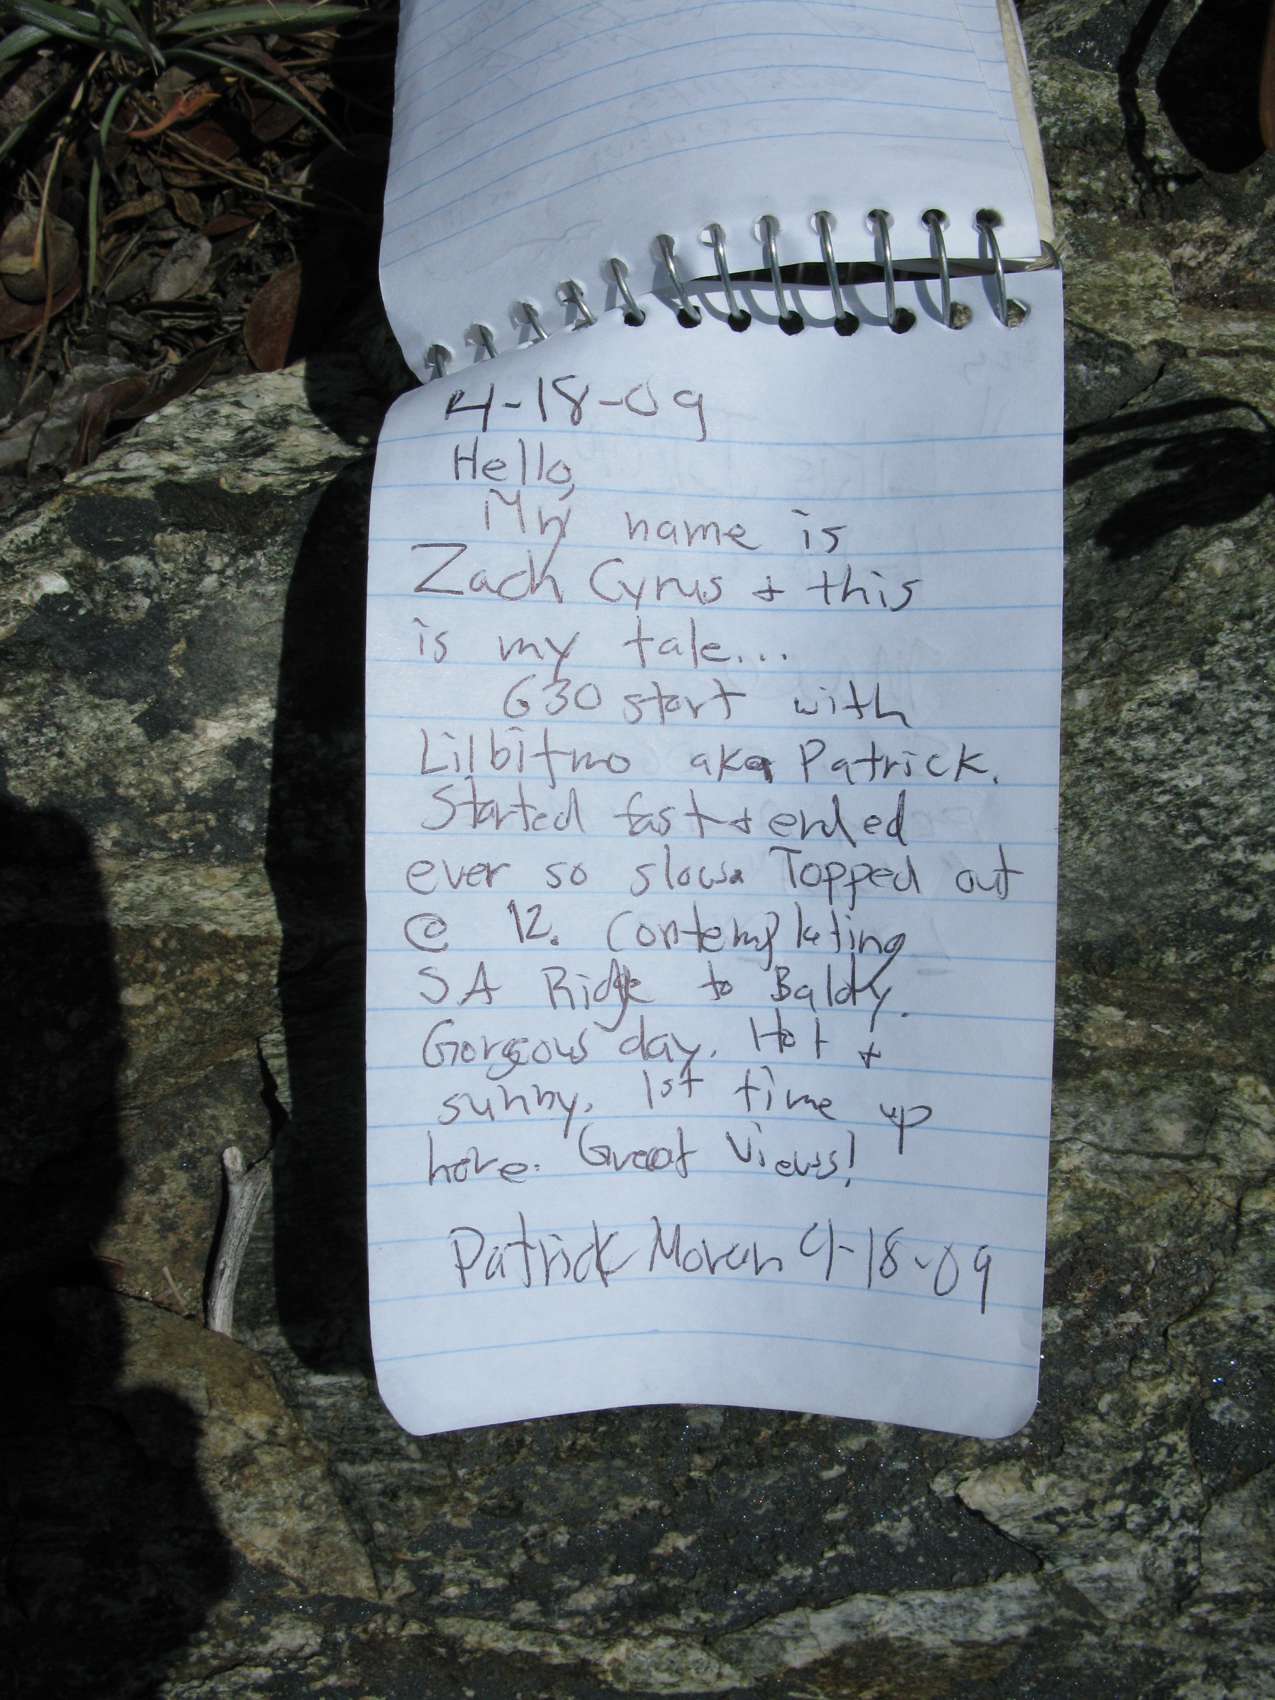 4-18-09
Hello,
My name is
Zach Cyrus + this
is my tale...
630 start with
Lilbitmo aka Patrick.
Started fast + ended
ever so slow. Topped out
@ 12. Contemplating
SA Ridge to Baldy.
Gorgeous day. Hot +
sunny. 1st time up
here. Great Views!
Patrick Moran 4-18-09